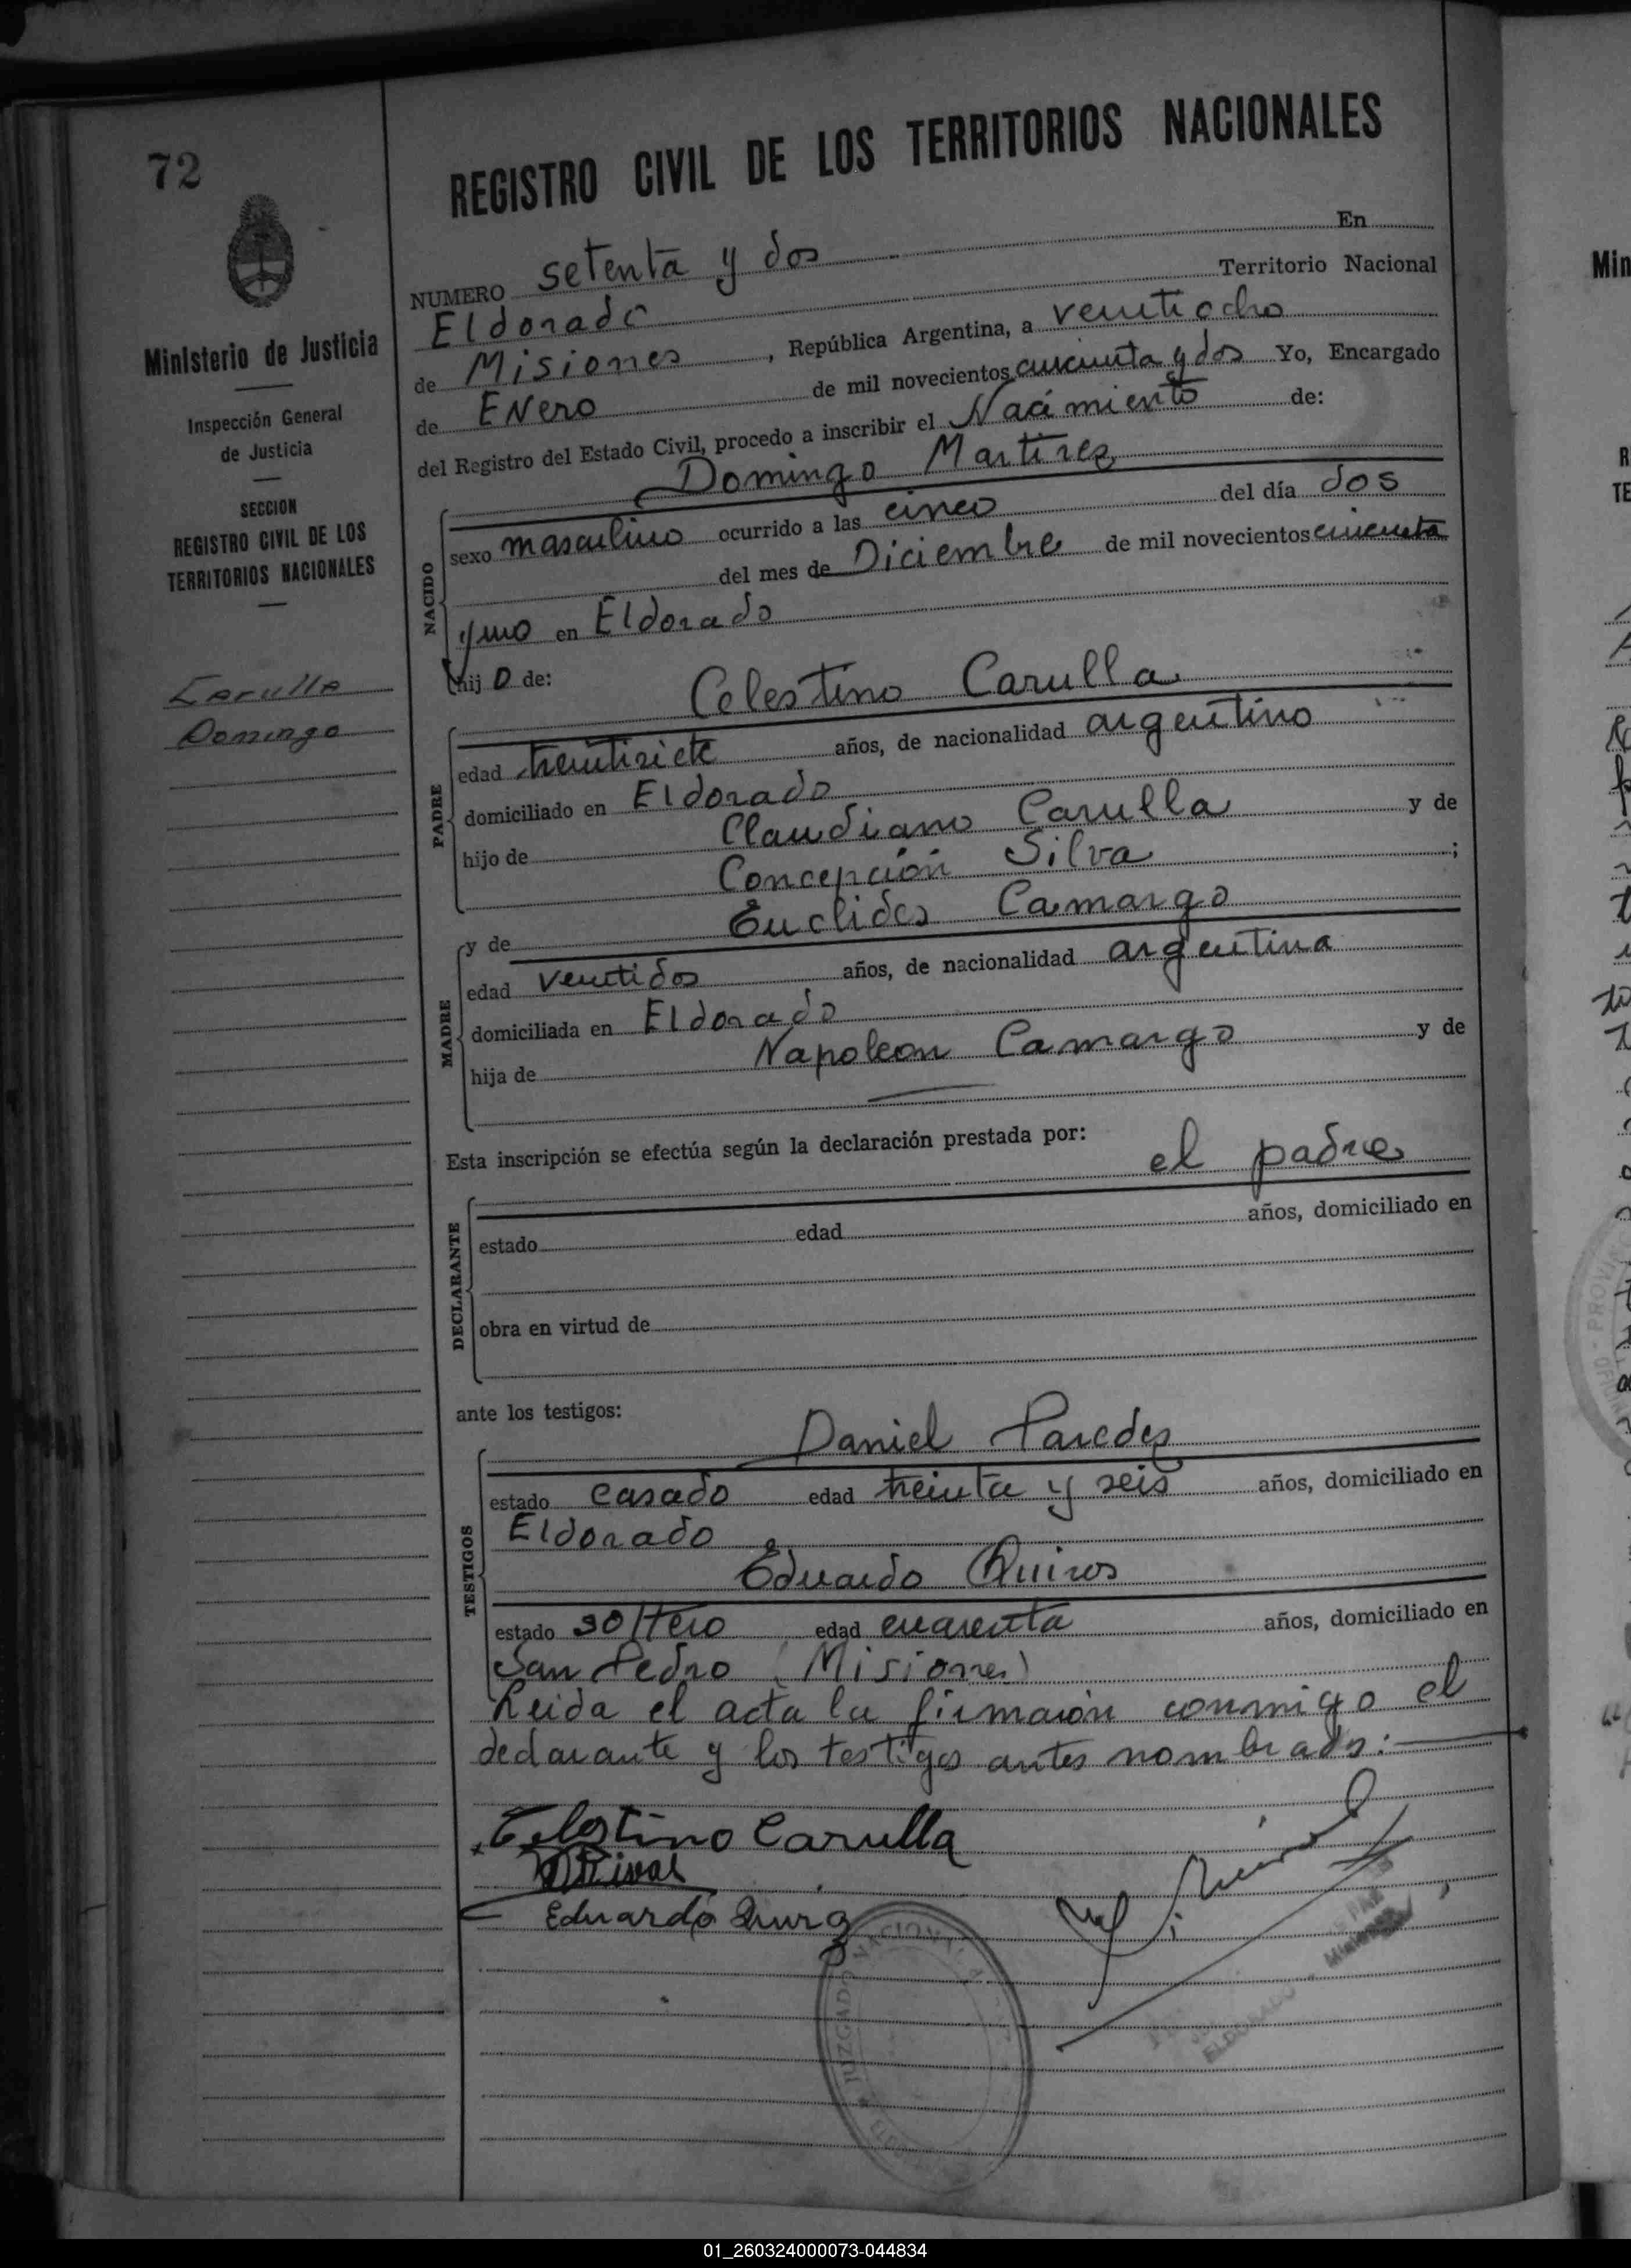 72
REGISTRO CIVIL DE LOS TERRITORIOS NACIONALES
Ministerio de Justicia
Inspección General
de Justicia
SECCION
REGISTRO CIVIL DE LOS
TERRITORIOS NACIONALES
Carulla
Domingo
NUMERO setenta y dos En
Eldorado Territorio Nacional
de Misiones, República Argentina, a veintiocho
de Enero de mil novecientos cincuenta y dos Yo, Encargado
del Registro del Estado Civil, procedo a inscribir el Nacimiento de:
Domingo Martirez
NACIDO
sexo masculino ocurrido a las cinco del día dos
del mes de Diciembre de mil novecientos cincuenta
y uno en Eldorado
hijo de:
Celestino Carulla
PADRE
edad treintisiete años, de nacionalidad argentino
domiciliado en Eldorado
hijo de Claudiano Carulla y de
Concepción Silva;
y de Euclides Camargo
MADRE
edad veintidos años, de nacionalidad argentina
domiciliada en Eldorado
hija de Napoleon Camargo y de
Esta inscripción se efectúa según la declaración prestada por:
el padre
DECLARANTE
estado edad años, domiciliado en
obra en virtud de
ante los testigos:
Daniel Paredes
TESTIGOS
estado casado edad treinta y seis años, domiciliado en
Eldorado
Eduardo Quiros
estado soltero edad cuarenta años, domiciliado en
San Pedro (Misiones)
Leida el acta la firmaron conmigo el
declarante y los testigos antes nombrados:
Celestino Carulla
Eduardo
JUZGADO NACIONAL
ELDORADO - Misiones
Min
R
TE
01_260324000073-044834